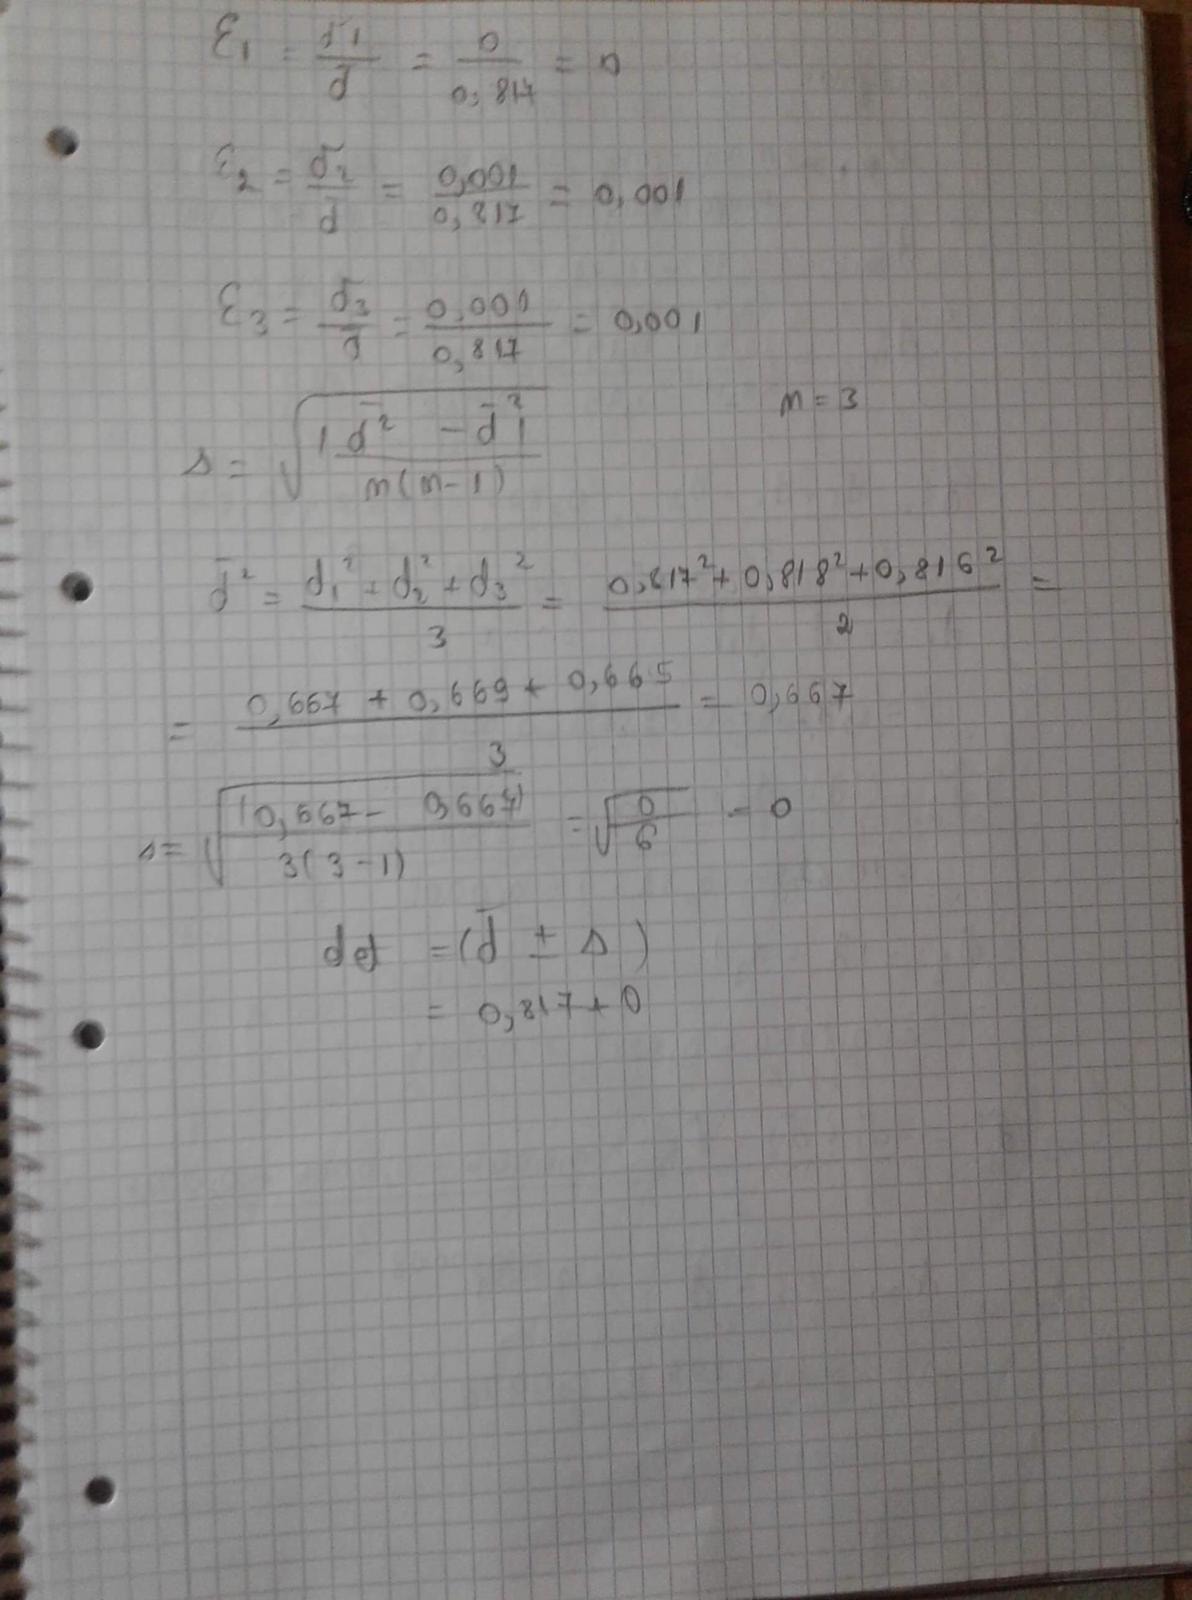 ε₁ = σ₁/d̄ = 0/0,817 = 0
ε₂ = σ₂/d̄ = 0,001/0,817 = 0,001
ε₃ = σ₃/d̄ = 0,001/0,817 = 0,001
n = 3
s = √(|d̄² - d̄²|/n(n-1))
d̄² = d₁² + d₂² + d₃²/3 = 0,817² + 0,818² + 0,816²/2 =
= 0,667 + 0,669 + 0,665/3 = 0,667
s = √(|0,667 - 0,667|/3(3-1)) = √(0/6) = 0
def = (d̄ ± s)
= 0,817 + 0